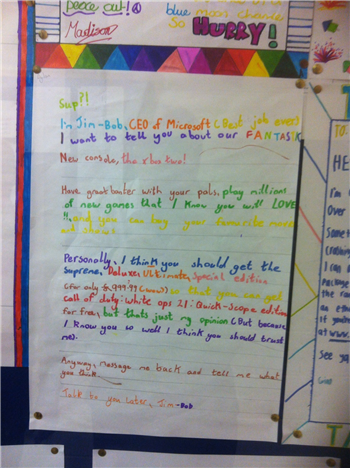 peace out!
Madison
blue moon chance
So HURRY!
Sup?!
I'm Jim-Bob, CEO of Microsoft (Best job ever)
I want to tell you about our FANTASTIC
New console, the xbox two!
Have great banter with your pals, play millions
of new games that I know you will LOVE
!! and you can buy your favourite movies
and shows.
Personally, I think you should get the
Supreme, Deluxe, Ultimate, Special edition
(for only £999.99 (wow)) so that you can get
call of duty: white ops 21: Quick-Scope edition
for free, but thats just my opinion (But because
I know you so well I think you should trust
me).
Anyway, message me back and tell me what
you think
Talk to you later, Jim-Bob
TO:
HE
I'm
Over
Some
crashing
I can
Package
the
an
if you
at www.
See ya